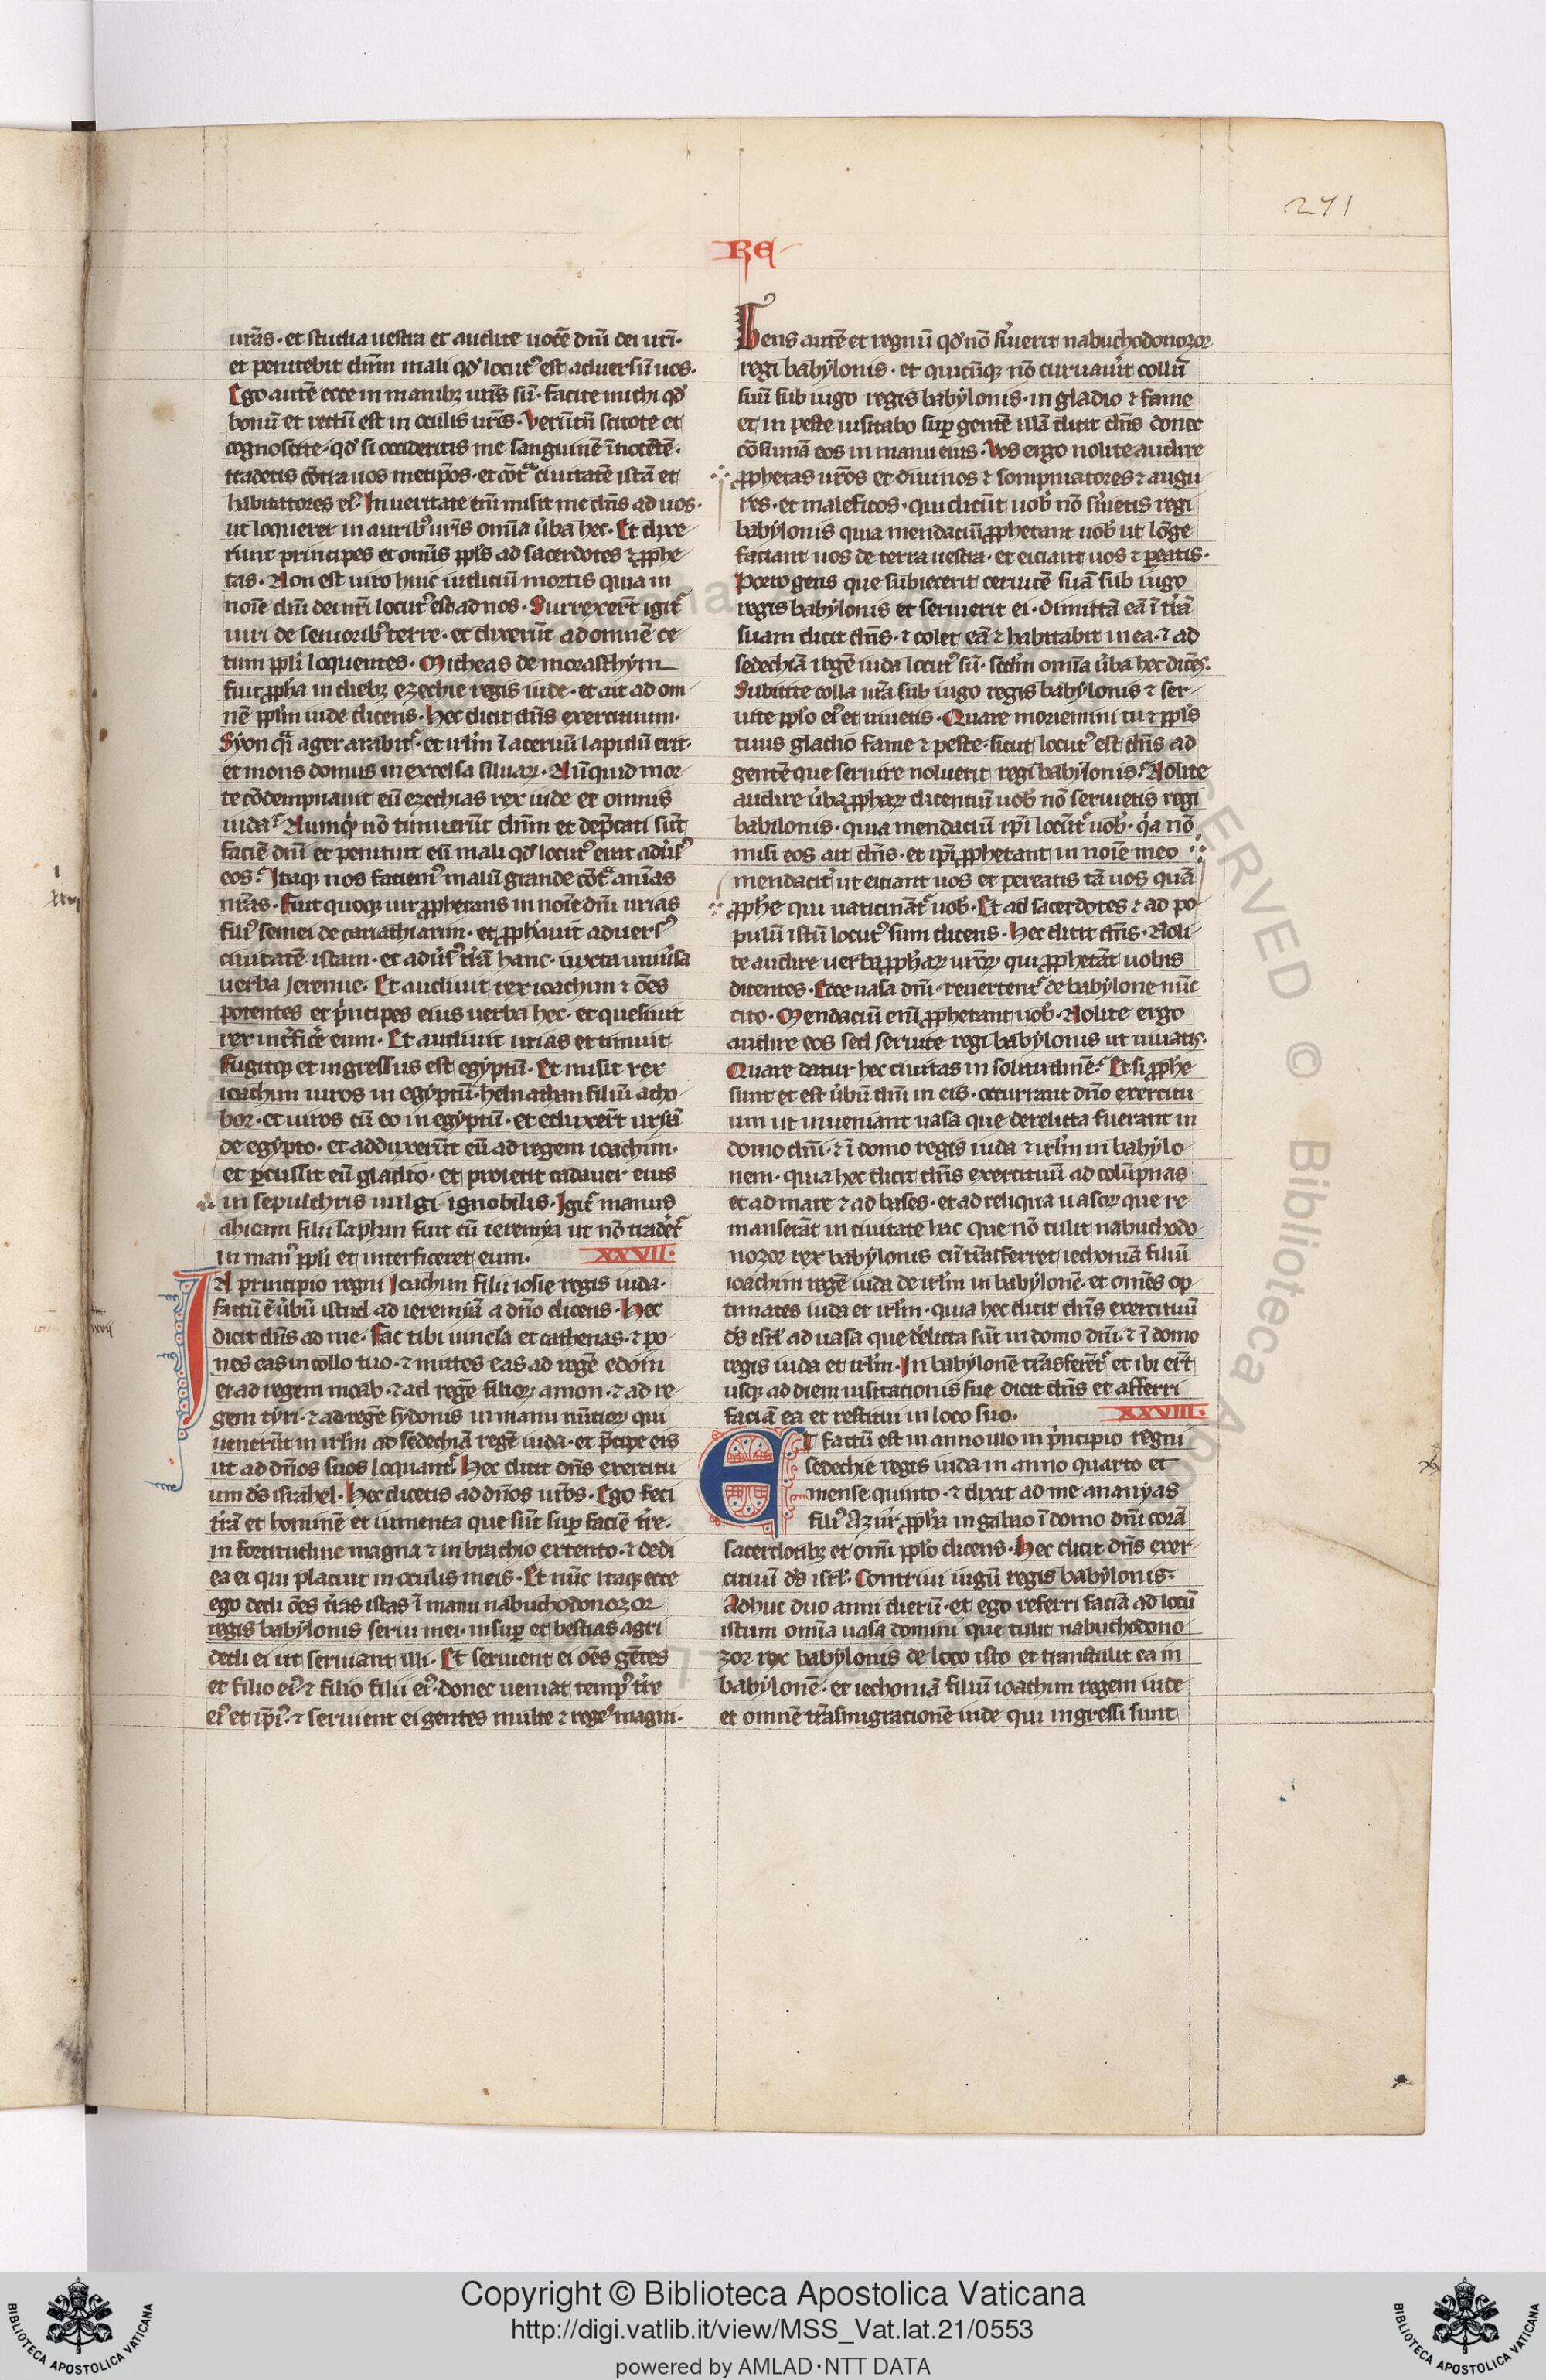 271
RE
ur̄as · et studia uestra et audite uocē dn̄i dei ur̄i ·
et penitebit dn̄m mali qđ locutꝰ est aduersū uos .
Ego autē ecce in manibꝫ ur̄is sū · facite michi qđ
bonū et rectū est in oculis ur̄is · Verūtn̄ scitote et
cognoscite · qđ si occideritis me sanguinē īnocētē ·
tradetis cōtra uos metip̄os · et cōtª ciuitatē istā et
habitatores eiꝰ · In ueritate em̄ misit me dn̄s ad uos ·
ut loquerer in auribꝰ ur̄is om̄ia ùba hec · Et dixe
runt principes et om̄is ppl̄s ad sacerdotes ⁊ ꝓphe
tas · Non est uiro huic iudiciū mortis quia in
noīe dn̄i dei nr̄i locutꝰ est ad nos · Surrexer̄t igit᷑
uiri de senioribꝰ terre · et dixerūt ad omnē ce
tum ppl̄i loquentes · Micheas de morasthym
fuit ꝓph̄a in diebꝫ ezechie regis iude · et ait ad om
nē ppl̄m iude dicens · Hec dicit dn̄s exercituum ·
Syon qªi ager arabit᷑ · et irl̄m ī aceruū lapidū erit ·
et mons domus in excelsa siluaꝝ · Nūquid mor
te cōdempnauit eū ezechias rex iude et omnis
iuda · Numqͥd nō timuerūt dn̄m et dep̄cati sūt
faciē dn̄i et penituit eū mali qđ locutꝰ erat adùsꝰ
eos · Itaqꝫ nos faciemꝰ malū grande cōtª anīas
nr̄as · Fuit quoqꝫ uir ꝓphetans in noīe dn̄i urias
filiꝰ semei de cariathiarim · et ꝓph̄auit aduersꝰ
ciuitatē istam · et adùsꝰ tr̄ā hanc · iuxta uniùsa
uerba Jeremie · Et audiuit rex ioachim ⁊ ōes
potentes et pͥncipes eius uerba hec · et quesiuit
rex int̄ficͤe eum · Et audiuit urias et timuit
fugitqꝫ et ingressus est egyptū · Et misit rex
ioachim uiros in egyptū · helnathan filiū acho
bor · et uiros cū eo in egyptū · et eduxer̄t uryā
de egypto · et adduxerūt eū ad regem ioachim ·
et ꝑcussit eū gladio · et proiecit cadauer eius
in sepulchris uulgi ignobilis · Igit᷑ manus
ahicam filii saphan fuit cū ieremya ut nō tradēt᷑
in manꝰ ppl̄i et interficeret eum · XXVII ·
IN principio regni Joachim filii iosie regis iuda ·
factū ē ùbū istud ad ieremyā a dn̄o dicens · Hec
dicit dn̄s ad me · Fac tibi uincl̄a et cathenas · ⁊ po
nes eas in collo tuo · ⁊ mittes eas ad regē edom
et ad regem moab · ⁊ ad regē filioꝝ amon · ⁊ ad re
gem tyri · ⁊ ad regē sydonis in manu nūtioꝝ qui
uenerūt in irl̄m ad sedechiā regē iuda · et p̄cipe eis
ut ad dn̄os suos loquant᷑ · Hec dicit dn̄s exercitu
um ds̄ israhel · Hec dicetis ad dn̄os ur̄os · Ego feci
tr̄ā et hominē et iumenta que sūt suꝑ faciē tr̄e ·
in fortitudine magna ⁊ in brachio extento · ⁊ dedi
ea ei qui placuit in oculis meis · Et nūc itaqꝫ ecce
ego dedi ōes tr̄as istas ī manu nabuchodonozor
regis babylonis serui mei · insuꝑ et bestias agri
dedi ei ut seruiant illi · Et seruient ei ōes gētes
et filio eiꝰ · ⁊ filio filii eiꝰ · donec ueniat tempꝰ tr̄e
eiꝰ et ip̄iꝰ · ⁊ seruient ei gentes multe ⁊ reges magni ·
Gens autē et regnū qđ nō sùierit nabuchodonozor
regi babylonis · et quicūqꝫ nō curuauìt collū
suū sub iugo regis babylonis · in gladio ⁊ fame
et in peste uisitabo suꝑ gentē illā dicit dn̄s donec
cōsumā eos in manu eius · Vos ergo nolite audire
ꝓphetas ur̄os et diuinos ⁊ sompniatores ⁊ augu
res · et maleficos · qui dicūt uob̄ nō sùietis regi
babylonis quia mendaciū ꝓphetant uob̄ ut lōge
faciant uos de terra uestra · et eiciant uos ⁊ ꝑeatis ·
Porro gens que subiecerit ceruicē suā sub iugo
regis babylonis et seruierit ei · dimittā eā ī tr̄ā
suam dicit dn̄s · ⁊ colet eā ⁊ habitabit in ea · ⁊ ad
sedechiā regē iuda locutꝰ sū · scd̄m om̄ia ùba hec dicēs ·
Subicite colla ur̄a sub iugo regis babylonis ⁊ ser
uite ppl̄o eiꝰ et uiuetis · Quare moriemini tu ⁊ ppl̄s
tuus gladio fame ⁊ peste · sicut locutꝰ est dn̄s ad
gentē que seruire noluerit regi babylonis · Nolite
audire ùba ꝓphaꝝ dicentiū uob̄ nō seruietis regi
babilonis · quia mendaciū ip̄i locūt᷑ uob̄ · qͥa nō
misi eos ait dn̄s · et ip̄i ꝓphetant in noīe meo
mendacit̾ ut eiciant uos et pereatis tā uos quā
ꝓph̄e qui uaticināt᷑ uob̄ · Et ad sacerdotes ⁊ ad po
pulū istū locutꝰ sum dicens · Hec dicit dn̄s · Noli
te audire uerba ꝓph̄aꝝ ur̄oꝝ qui ꝓphetāt uobis
dicentes · Ecce uasa dn̄i reuertent᷑ de babylone nūc
cito · Mendaciū em̄ ꝓphetant uob̄ · Nolite ergo
audire eos sed seruite regi babylonis ut uiuatis ·
Quare datur hec ciuitas in solitudinē · Et si ꝓph̄e
sunt et est ùbū dn̄i in eis · occurrant dn̄o exercitu
um ut n̄ ueniant uasa que derelicta fuerant in
domo dn̄i · ⁊ ī domo regis iuda ⁊ irl̄m in babylo
nem · quia hec dicit dn̄s exercituū ad colūpnas
et ad mare ⁊ ad bases · et ad reliqua uasoꝝ que re
manserāt in ciuitate hac que nō tulit nabuchodo
nozor rex babylonis cū tr̄asferret iechoniā filiū
ioachim regē iuda de irl̄m in babylonē · et omēs op
timates iuda et irl̄m · quia hec dicit dn̄s exercituū
ds̄ isrl̄ ad uasa que dèlicta sūt in domo dn̄i · ⁊ ī domo
regis iuda et irl̄m · In babylonē tr̄asferēt᷑ et ibi er̄t
usqꝫ ad diem uisitacionis sue dicit dn̄s et afferri
faciā ea et restitui in loco suo · XXVIII ·
ET factū est in anno illo in pͥncipio regni
sedechie regis iuda in anno quarto et
mense quinto · ⁊ dixit ad me ananyas
filiꝰ Azur ꝓph̄a in gabao ī domo dn̄i corā
sacerdotibꝫ et omī ppl̄o dicens · Hec dicit dn̄s exer
cituū ds̄ isrl̄ · Contriui iugū regis babylonis ·
Adhuc duo anni dierū · et ego referri faciā ad locū
istum om̄ia uasa domini que tulit nabuchodono
zor rex babylonis de loco isto et transtulit ea in
babylonē · et iechoniā filiū ioachim regem iude
et omnē tr̄asmigracionē iude qui ingressi sunt
Copyright © Biblioteca Apostolica Vaticana
http://digi.vatlib.it/view/MSS_Vat.lat.21/0553
powered by AMLAD·NTT DATA
BIBLIOTECA APOSTOLICA VATICANA
BIBLIOTECA APOSTOLICA VATICANA